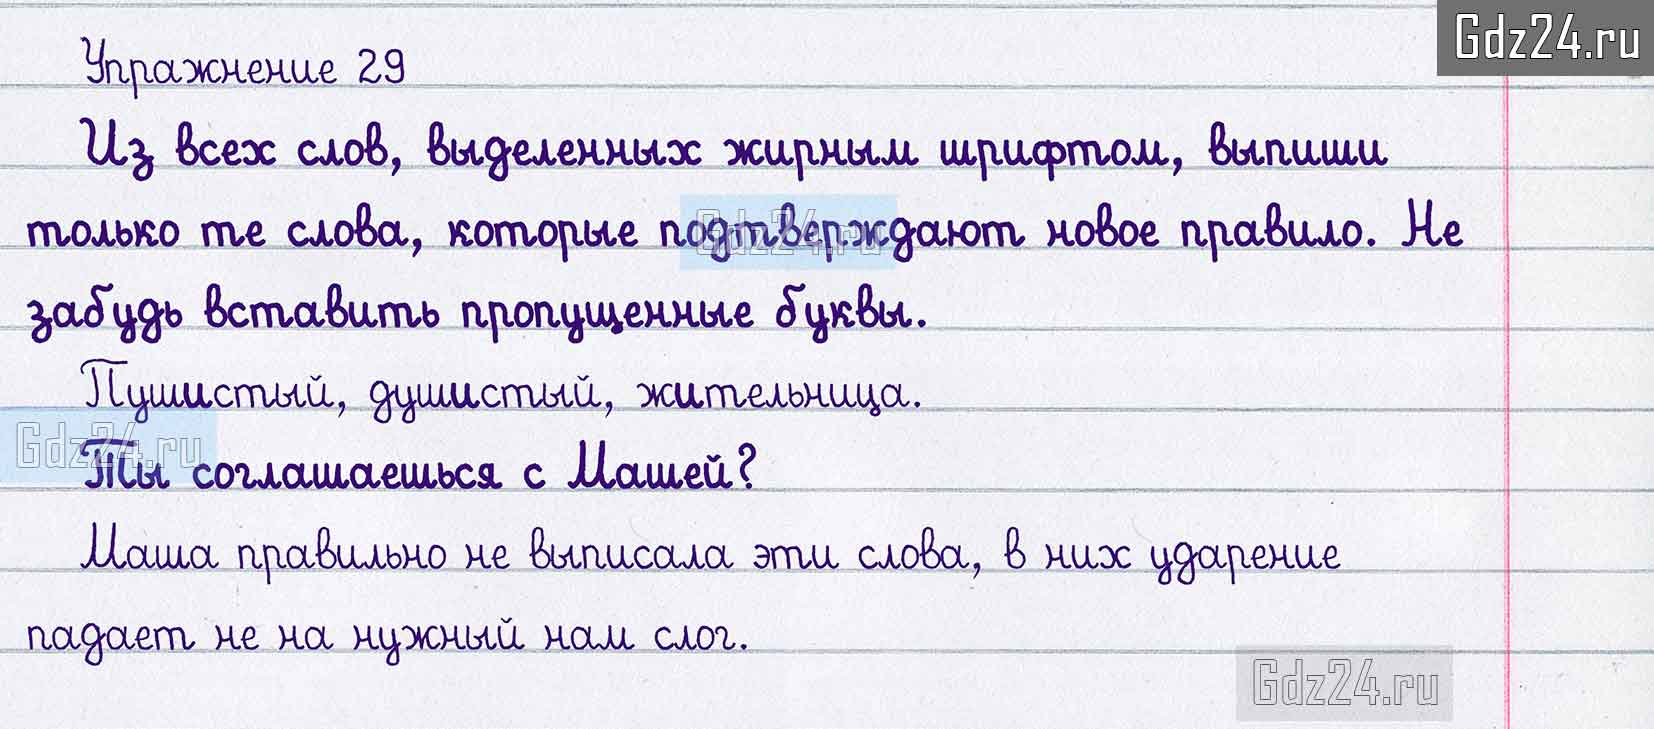 Gdz24.ru
Упражнение 29
Из всех слов, выделенных жирным шрифтом, выпиши
только те слова, которые подтверждают новое правило. Не
Gdz24.ru
забудь вставить пропущенные буквы.
Пушистый, душистый, жительница.
Gdz24.ru
Ты соглашаешься с Машей?
Маша правильно не выписала эти слова, в них ударение
падает не на нужный нам слог.
Gdz24.ru